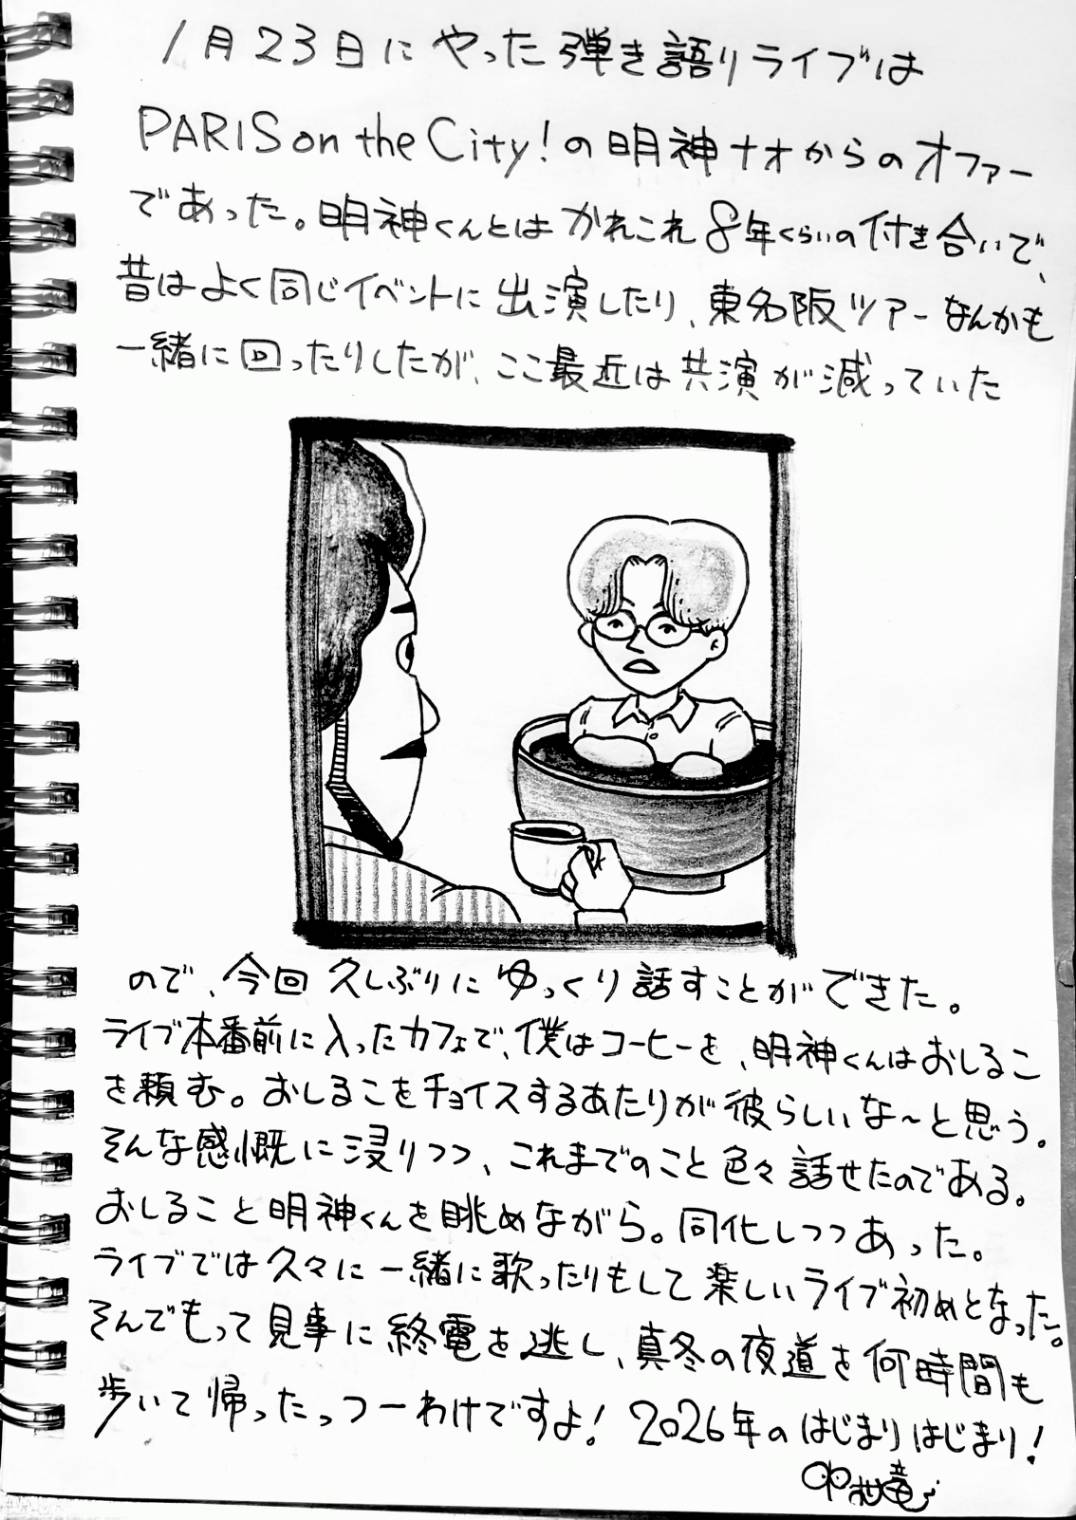 1月23日にやった弾き語りライブは
PARIS on the City!の明神ナオからのオファー
であった。明神くんとはかれこれ8年くらいの付き合いで、
昔はよく同じイベントに出演したり、東名阪ツアーなんかも
一緒に回ったりしたが、ここ最近は共演が減っていた
ので、今回久しぶりにゆっくり話すことができた。
ライブ本番前に入ったカフェで、僕はコーヒーを、明神くんはおしるこ
を頼む。おしるこをチョイスするあたりが彼らしいな〜と思う。
そんな感慨に浸りつつ、これまでのこと色々話せたのである。
おしること明神くんを眺めながら。同化しつつあった。
ライブでは久々に一緒に歌ったりもして楽しいライブ初めとなった。
そんでもって見事に終電を逃し、真冬の夜道を何時間も
歩いて帰ったっつーわけですよ!2026年のはじまりはじまり!
中村竜